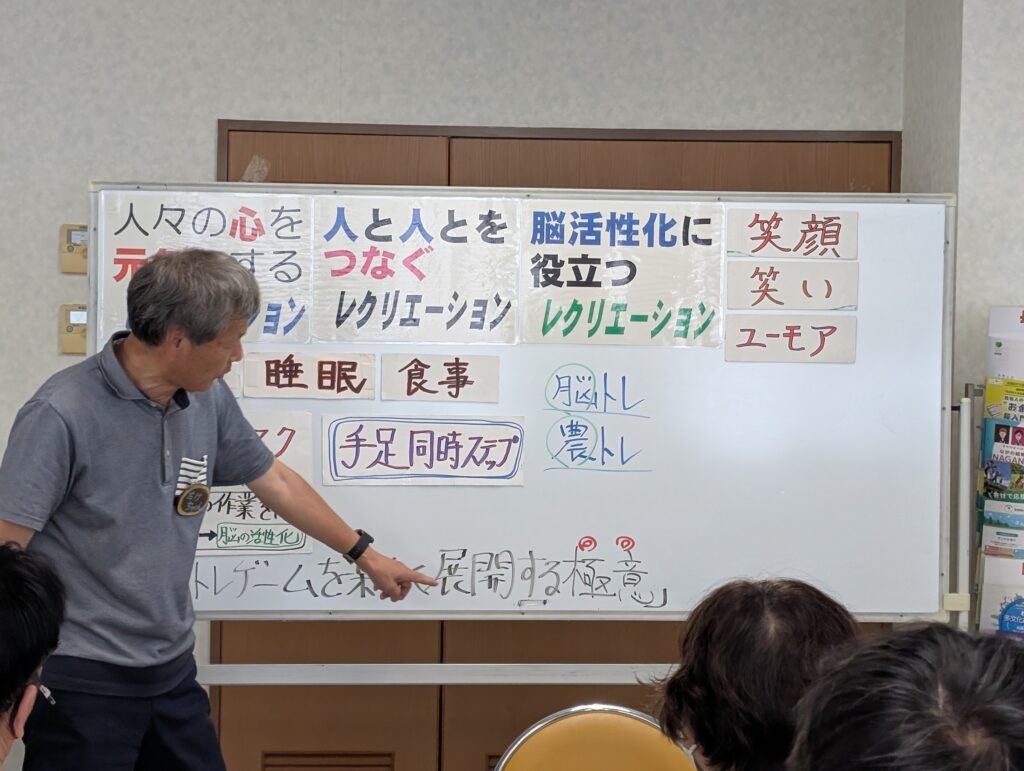 人々の心を
元 する
ョン
人と人とを
つなぐ
レクリエーション
脳活性化に
役立つ
レクリエーション
笑顔
笑い
ユーモア
睡眠
食事
脳トレ
農トレ
スク
手足同時ステップ
の作業を
→脳の活性化
トレゲームを 展開する極意」
NAGANO